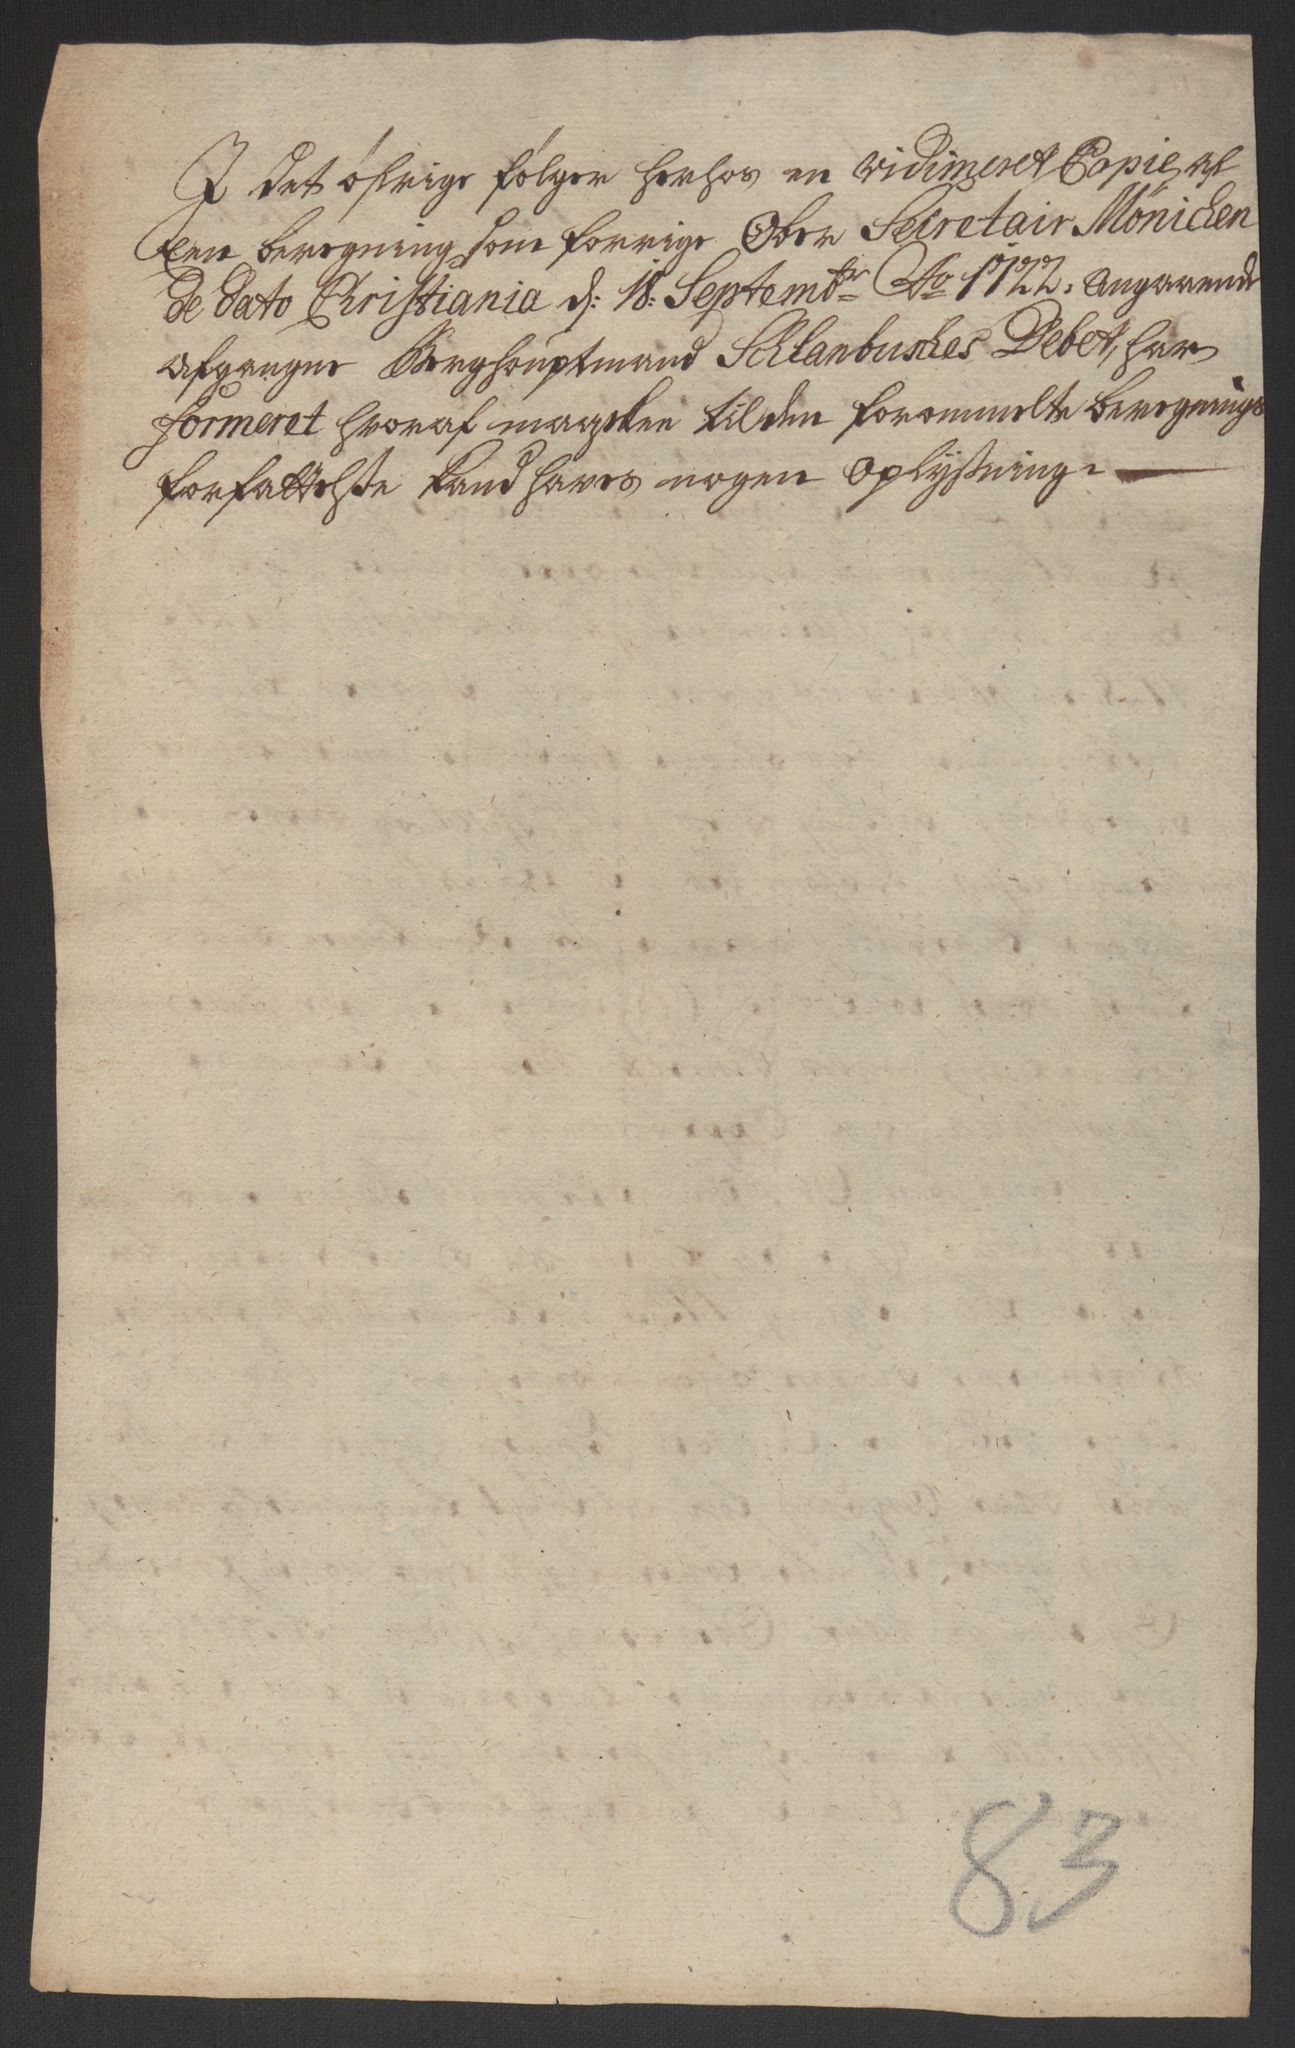 I det öfrige følger herhos en vidimeret Copie af
een beregning som forrige Ober Secretair Mönichen
de dato Christiania d: 18: Septembr Ao 1722. angaaende
afgangne Berghouptmand Schlanbusches Debet, har
formeret hvoraf maaskee til den forommelte beregnings
forfattelsse kand haves nogen oplysning
83